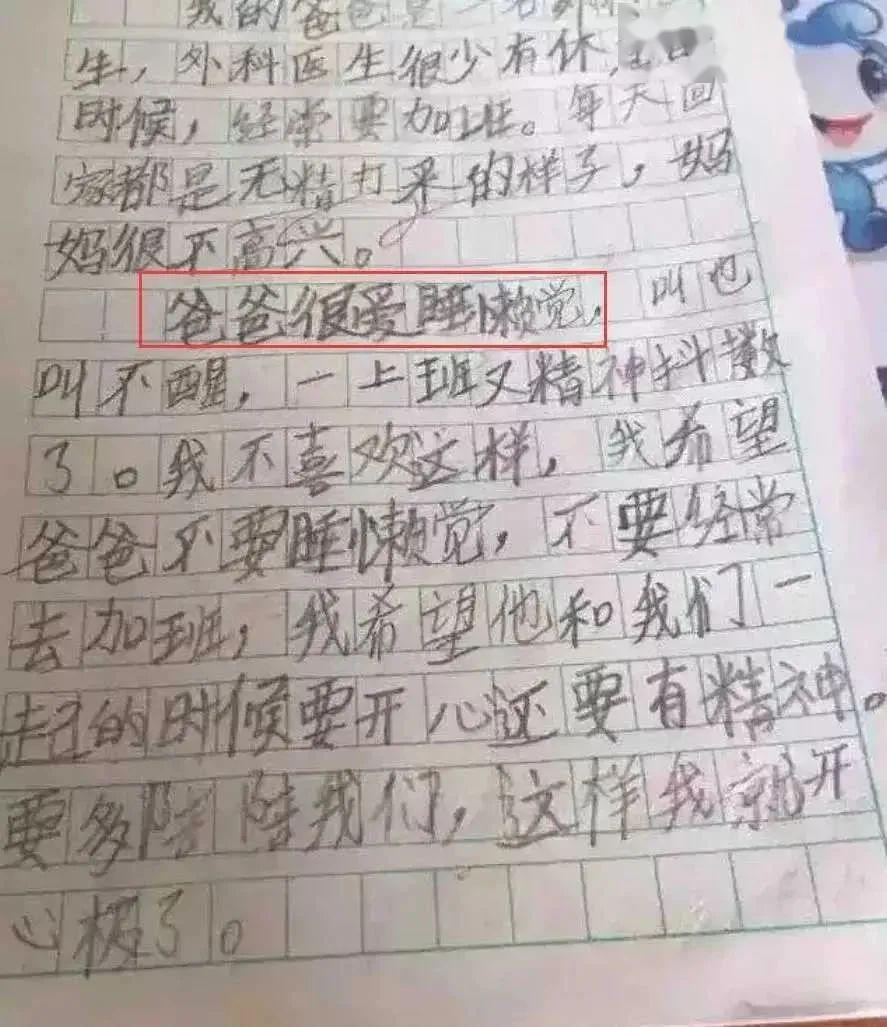 我的爸爸是一名
生，外科医生很少有休
时候，经常要加班。每天回
家都是无精打采的样子，妈
妈很不高兴。
爸爸很爱睡懒觉，叫也
叫不醒，一上班又精神抖擞
了。我不喜欢这样，我希望
爸爸不要睡懒觉，不要经常
去加班，我希望他和我们一
起的时候要开心还要有精神。
要多陪陪我们，这样我就开
心极了。